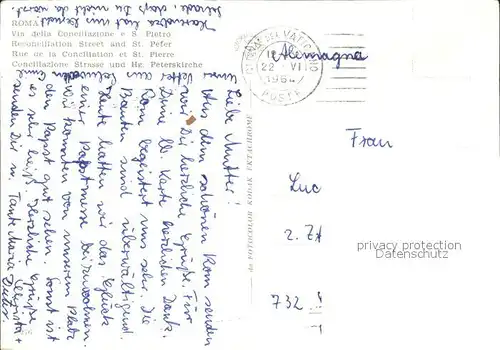 ROMA
Via della Conciliazione e S. Pietro
Reconciliation Street and St. Peter
Rue de la Conciliation et St. Pierre
Conciliazione Strasse und Hr. Peterskirche
Liebe Mutter!
Aus dem schönen Rom senden
wir Dir herzliche Grüße. Für
Deine lb. Karte herzlichen Dank.
Rom begeistert uns sehr. Die
Bauten sind überwältigend.
Heute hatten wir das Glück
einer Papstmesse beizuwohnen.
Wir konnten von unserem Platz
den Papst gut sehen. Sonst ist
es sehr heiß. Herzliche Grüße
senden Dir u. Tante Maria
Christa +
Dieter.
Schade, daß Du nicht da warst
POSTE
Alemagna
Frau
Luc
2. Zt
732
da FOTOCOLOR KODAK EKTACHROME
privacy protection
Datenschutz